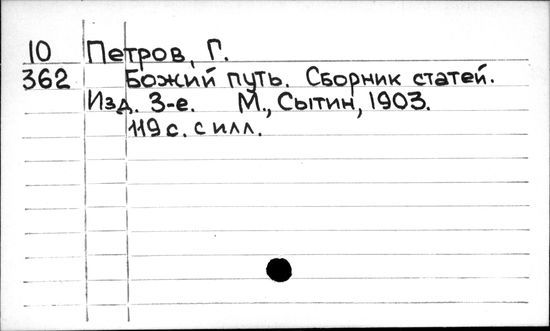 10 Петров, Г.
362 Божий путь. Сборник статей.
Изд. 3-е. М., Сытин, 1903.
119 с. с илл.